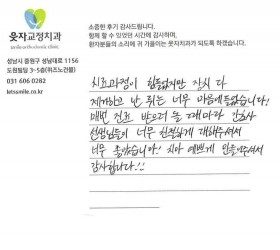 웃자교정치과
성남시 중원구 성남대로 1156
도원빌딩 3~5층(위즈노건물)
031 606 0282
letssmile.co.kr
소중한 후기 감사드립니다.
함께 할 수 있었던 시간에 감사하며,
환자분들의 소리에 귀 기울이는 웃자치과가 되도록 하겠습니다.
치료과정이 힘들었지만 장치 다
제거하고 난 뒤는 너무 마음에들었습니다!
매번 진료 받으러 올 때마다 간호사
선생님들이 너무 친절하게 대해주셔서
너무 좋았습니다! 치아 예쁘게 만들어주셔서
감사합니다!!